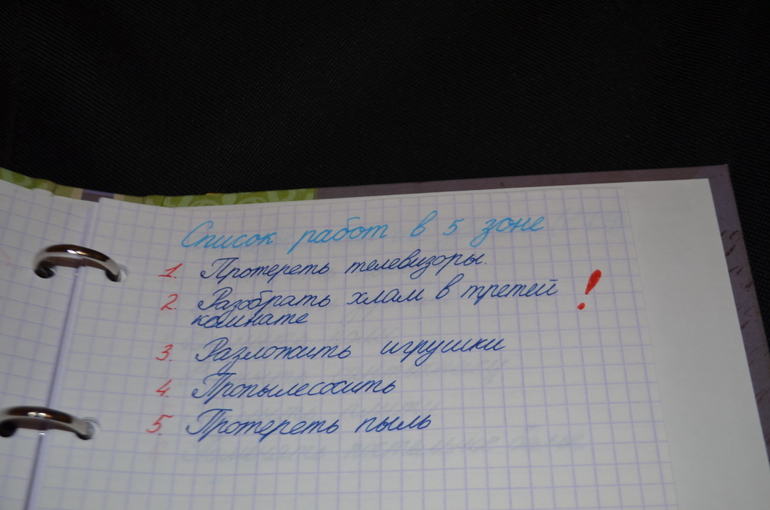 Список работ в 5 зоне
1. Протереть телевизоры.
2. Разобрать хлам в третей !
комнате
3. Разложить игрушки
4. Пропылесосить
5. Протереть пыль